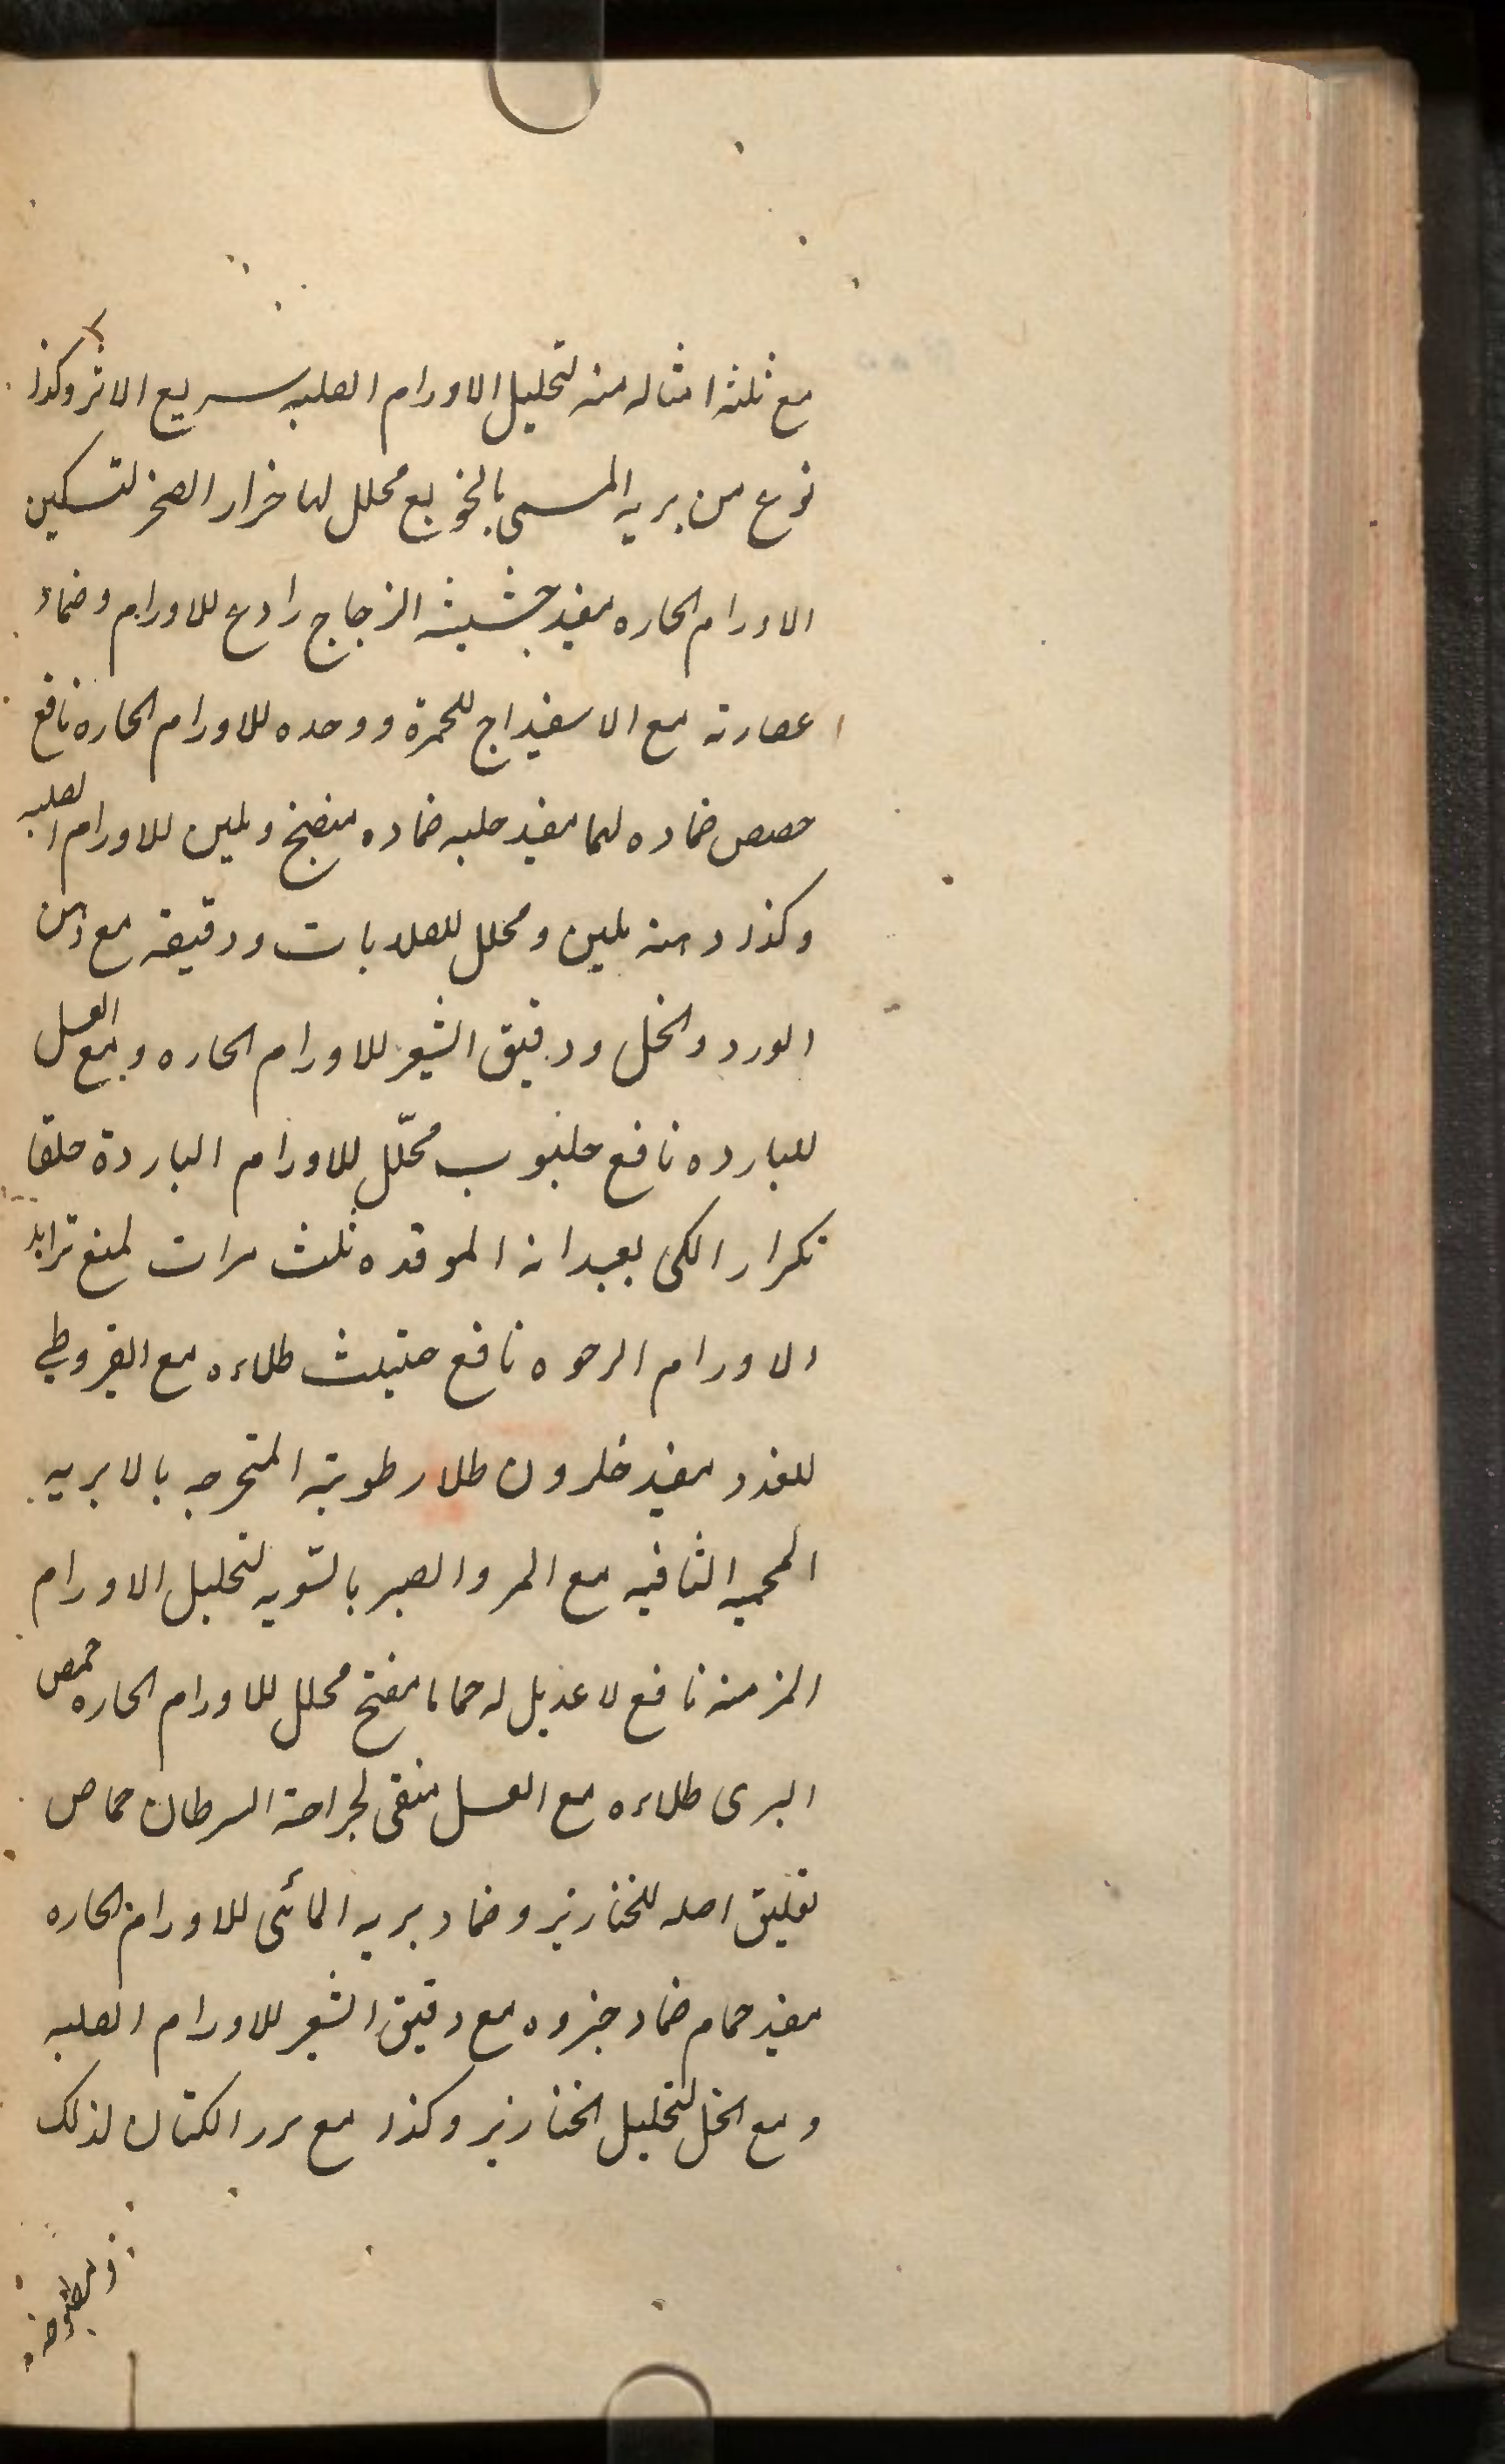 مع ثلثه امثاله منه لتحليل الاورام الصلبه سريع الاثر وكذا
نوع من بريه المسمى محلل لها خراز الصخر لتسكين
الاورام الحاره مفيد حشيشة الزجاج رادع للاورام وضماد
عصارته مع الاسفيداج للحمرة ووحده للاورام الحاره نافع
حصص ضماده لهما مفيد حلبه ضماده منضج وملين للاورام الصلبه
وكذا دهنه ملين ومحلل للصلابات ودقيقه مع دهن
الورد والخل ودقيق الشعير للاورام الحاره ومع العسل
للبارده نافع حلبوب محلّل للاورام الباردة حلقا
تكرار الكى بعيدانه الموقده ثلث مرات لمنع تزايد
الاورام الرخوه نافع حلتيت طلاءه مع القيروطي
للغدد مفيد حلزون طلا رطوبته المتحرجه بالابريه
المحميه الثاقبه مع المر والصبر بالسويه لتحليل الاورام
المزمنه نافع لا عديل له حماما مفتح محلل للاورام الحاره حمص
البرى طلاءه مع العسل منقى لجراحة السرطان حماض
تعليق اصله للخنازير وضماد بريه المائى للاورام الحاره
مفيد حمام ضماد خروه مع دقيق الشعير للاورام الصلبه
ومع الخل لتحليل الخنازير وكذا مع بزر الكتان لذلك